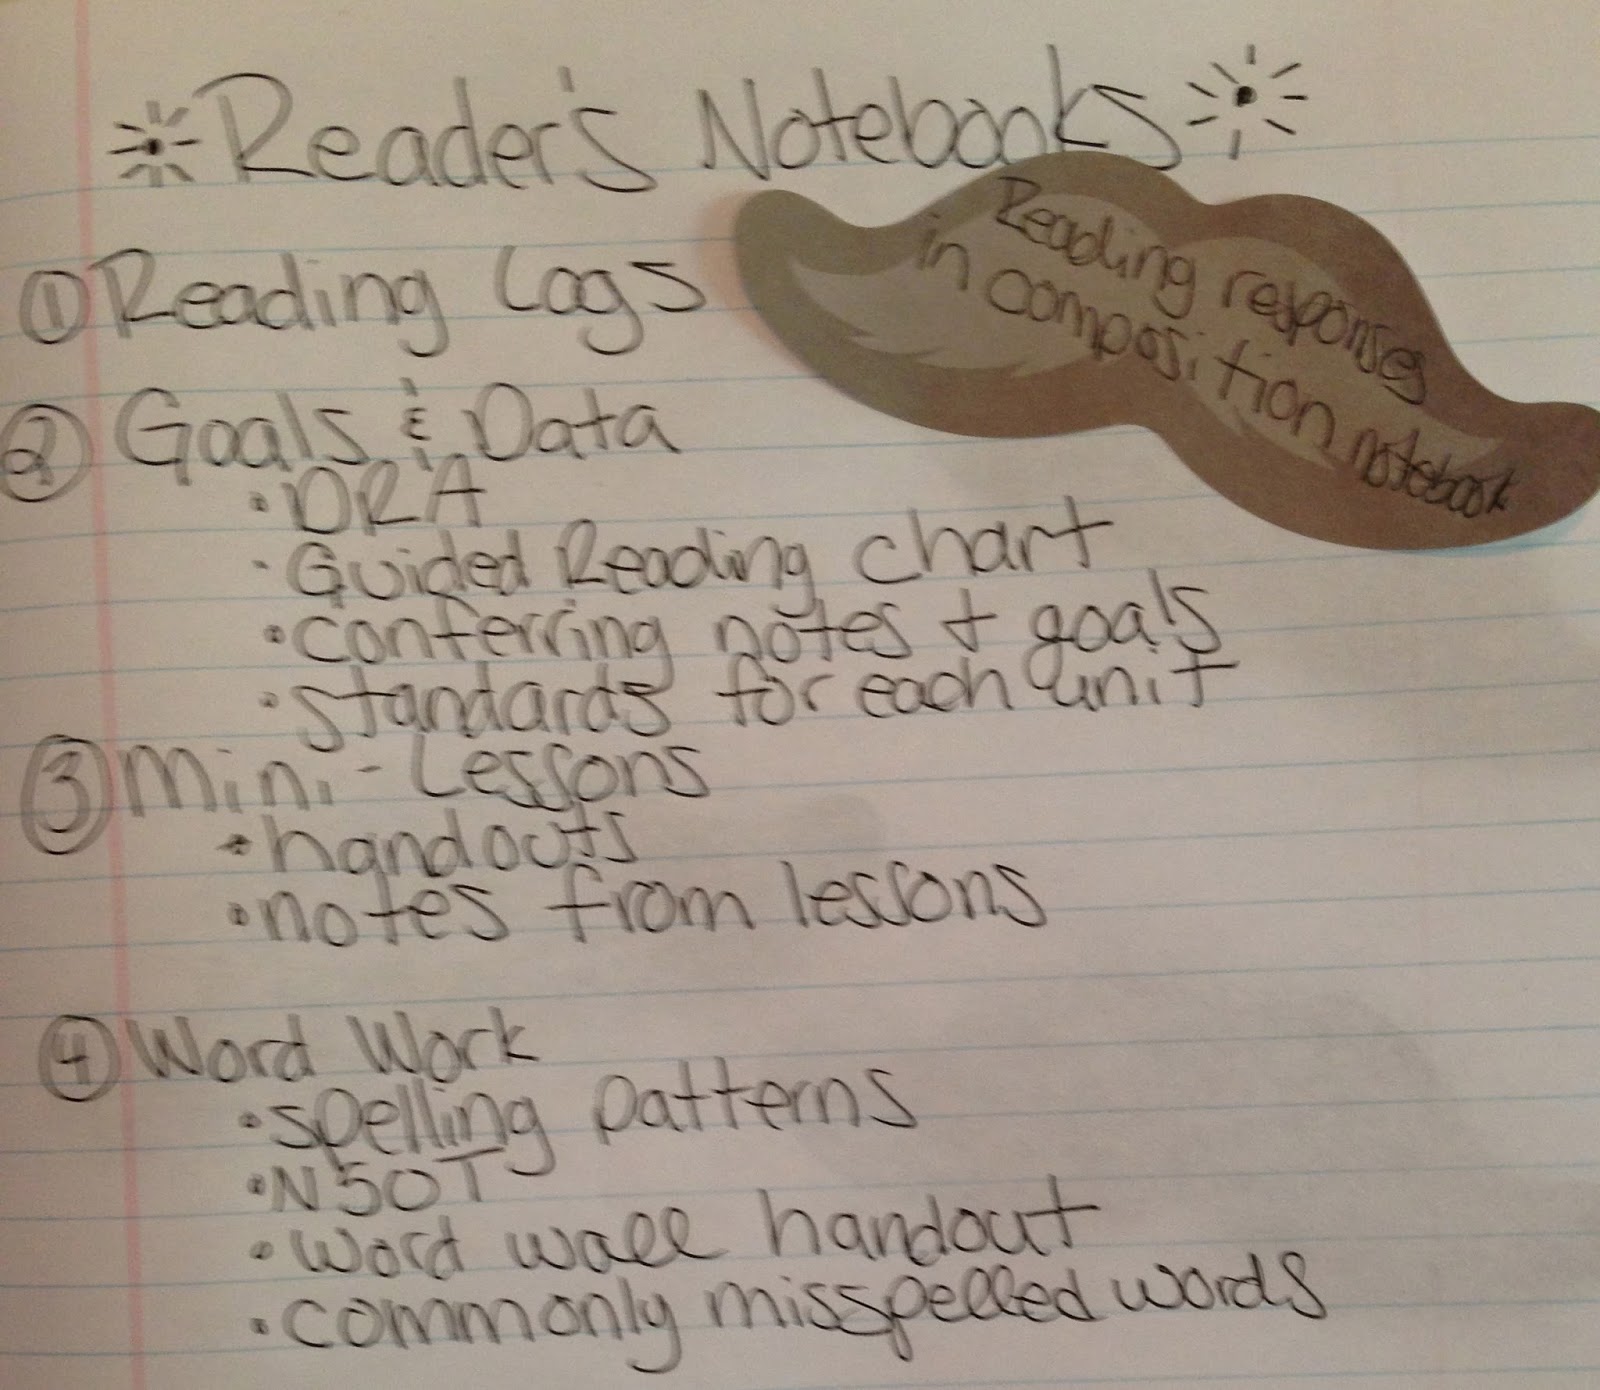 Reader's Notebooks
Reading responses
in composition notebook
① Reading Logs
② Goals & Data
• DRA
• Guided Reading chart
• conferring notes + goals
• standards for each unit
③ Mini-Lessons
• handouts
• notes from lessons
④ Word Work
• spelling patterns
• NSOT
• word wall handout
• commonly misspelled words